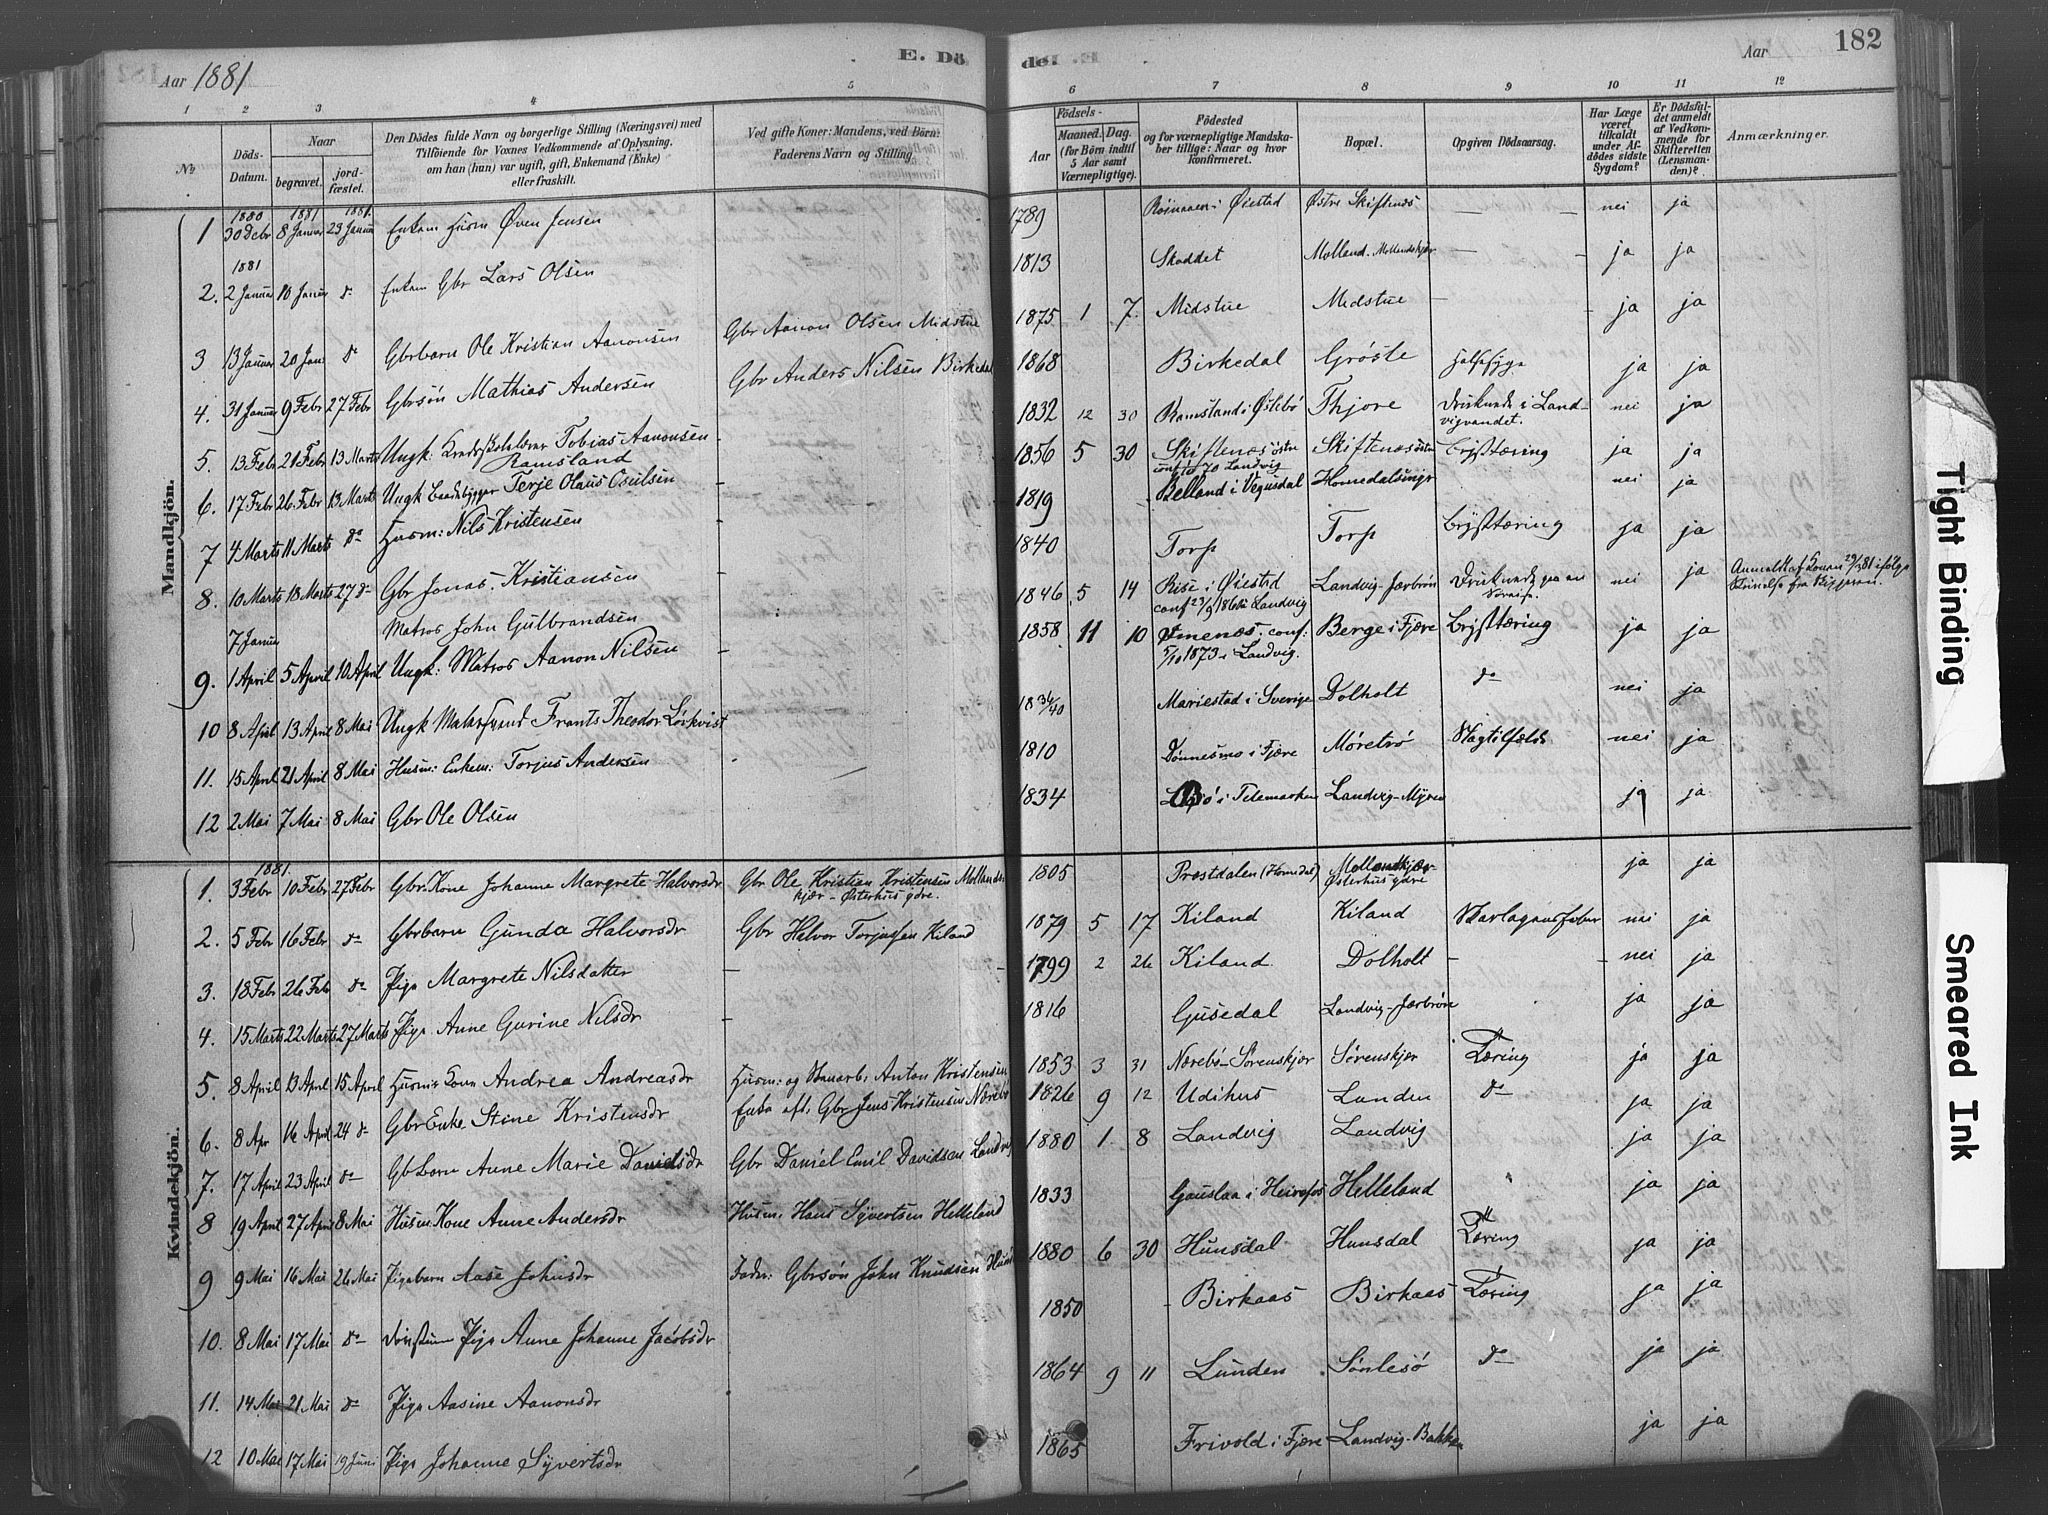 Aar 1881
E. Dö
de. E.
Aar
182
1 2 3 4 5 6 7 8 9 10 11 12
No
Döds-Datum.
Naar
begravet.
jord-fæstet.
Den Dödes fulde Navn og borgerlige Stilling (Næringsvei) med
Tilföiende for Voxnes Vedkommende af Oplysning,
om han (hun) var ugift, gift, Enkemand (Enke)
eller fraskilt.
Ved gifte Koner: Mandens, ved Börn:
Faderens Navn og Stilling
Födsels-
Aar
Maaned. Dag.
(for Börn indtil
5 Aar samt
Værnepligtige).
Födested
og for værnepligtige Mandska-
ber tillige: Naar og hvor
konfirmeret.
Bopæl.
Opgiven Dödsaarsag.
Har Læge
været
tilkaldt
under Af-
dödes sidste
Sygdom?
Er Dödsfal-
det anmeldt
af Vedkom-
mende for
Skifteretten
(Lensman-
den)?
Anmærkninger.
Mandkjön.
1 1880 30 Debr 1881 8 Januar 1881 23 Januar Enkem Husm Øven Jensen 1789 i Øiestad Østre Skiftenes — — nei ja
2. 1881 2 Januar 10 Januar do Enkem Gbr Lars Olsen 1813 Skaddet Molland. Mollandskjær — ja ja
3 13 Januar 20 Jan do Gbrbarn Ole Kristian Aanonsen Gbr Aanon Olsen Midstue 1875 1 7 Midstue Midstue — ja ja
4. 31 Januar 9 Febr 27 Febr Gbrsön Mathias Andersen Gbr Anders Nilsen Birkedal 1868 Birkedal Grøste Halssyge ja ja
5. 13 Febr 21 Febr 13 Marts Ungk: Tobias Aanonsen Ramsland 1832 12 30 Ramsland i Øslebö Thjore Druknede i Land-vigvandet. nei ja
6. 17 Febr 26 Febr 13 Marts Ungk Baadsbygger Terje Olaus Osulsen 1856 5 30 Skiftenes östre conf 70 Landvig Skiftenes östre Brysttæring ja ja
7 4 Marts 11 Marts do Husm: Nils Kristensen 1819 Belland i Vegusdal nei ja
8. 10 Marts 18 Marts 27 do Gbr Jonas Kristiansen 1840 Torp Torp Brysttæring ja ja
7 Januar Matros John Gulbrandsen 1846 5 14 Rise i Øiestad conf 23/9 186 i Landvig Landvig-Jærbrön Druknede nei ja
9. 1 April 5 April 10 April Ungk: Matros Aanon Nilsen — 1858 11 10 conf: 5/10 1873 i Landvig. Berge i Fjære Brysttæring ja ja
10 8 April 13 April 8 Mai Ungk Frants Theodor Lövkvist 18 36/40 Mariestad i Sverige Dolholt do nei ja
11. 15 April 21 April 8 Mai Husm: Enkem: Torjus Andersen 1810 Dønnesmo i Fjære Møretrö Slagtilfælde nei ja
12 2 Mai 7 Mai 8 Mai Gbr Ole Olsen 1834 i Telemarken Landvig-Myren ja ja
Kvindekjön.
1881.
1. 3 Febr 10 Febr 27 Febr Gbr: Kone Johanne Margrete Halvorsdr Gbr Ole Kristian Kristensen Mollands-kjær - Østerhus ydre. 1805 Prestdalen (Homedal) Mollandkjær-Østerhus ydre ja ja
2. 5 Febr 16 Febr do Gbrbarn Gunda Halvorsdr Gbr Halvor Torjussen Kiland 1879 5 17 Kiland Kiland Skarlagensfeber nei ja
3. 18 Febr 26 Febr do Pige Margrete Nilsdatter — 1799 2 26 Kiland Dolholt — nei ja
4. 15 Marts 22 Marts 27 Marts Pige Anne Gurine Nilsdr — 1816 Gusedal Landvig-Jærbrön ja ja
5. 8 April 13 April 15 April Husm: Kone Andrea Andreasdr Husm: og Anton Kristensen 1853 3 31 Nærebö-Sørenskjær Sørenskjær Tæring ja ja
6. 8 Apr 16 April 24 do Gbr Enke Stine Kristensdr Enke aft. Gbr Jens Kristensen Nærebö 1826 9 12 Udihus Landen do ja ja
7. 17 April 23 April do Gb barn Anne Marie Davidsdr Gbr Daniel Emil Davidsen Landvig 1880 1. 8 Landvig Landvig ja ja
8 19 April 27 April 8 Mai Husm Kone Anne Andersdr Husm: Hans Syvertsen Helleland 1833 Gauslaa i Heirefos Helleland ja ja
9 9 Mai 16 Mai 26 Mai Pigebarn Aase Johnsdr Fader: Gbrsön John Knudsen 1880 6 30 Hunsdal Hunsdal Tæring ja ja
10. 8 Mai 17 Mai do Pige Anne Johanne Jacobsdr 1850 Birkaas Birkaas Tæring ja ja
11. 14 Mai 21 Mai do Pige Aasine Aanonsdr 1864 9 11 Lunden Sönlesö do ja ja
12 10 Mai 17 Mai 19 Juni Pige Johanne Syvertsdr 1865 Frivold i Fjære Landvig-Bakken ja ja
Tight Binding
Smeared Ink